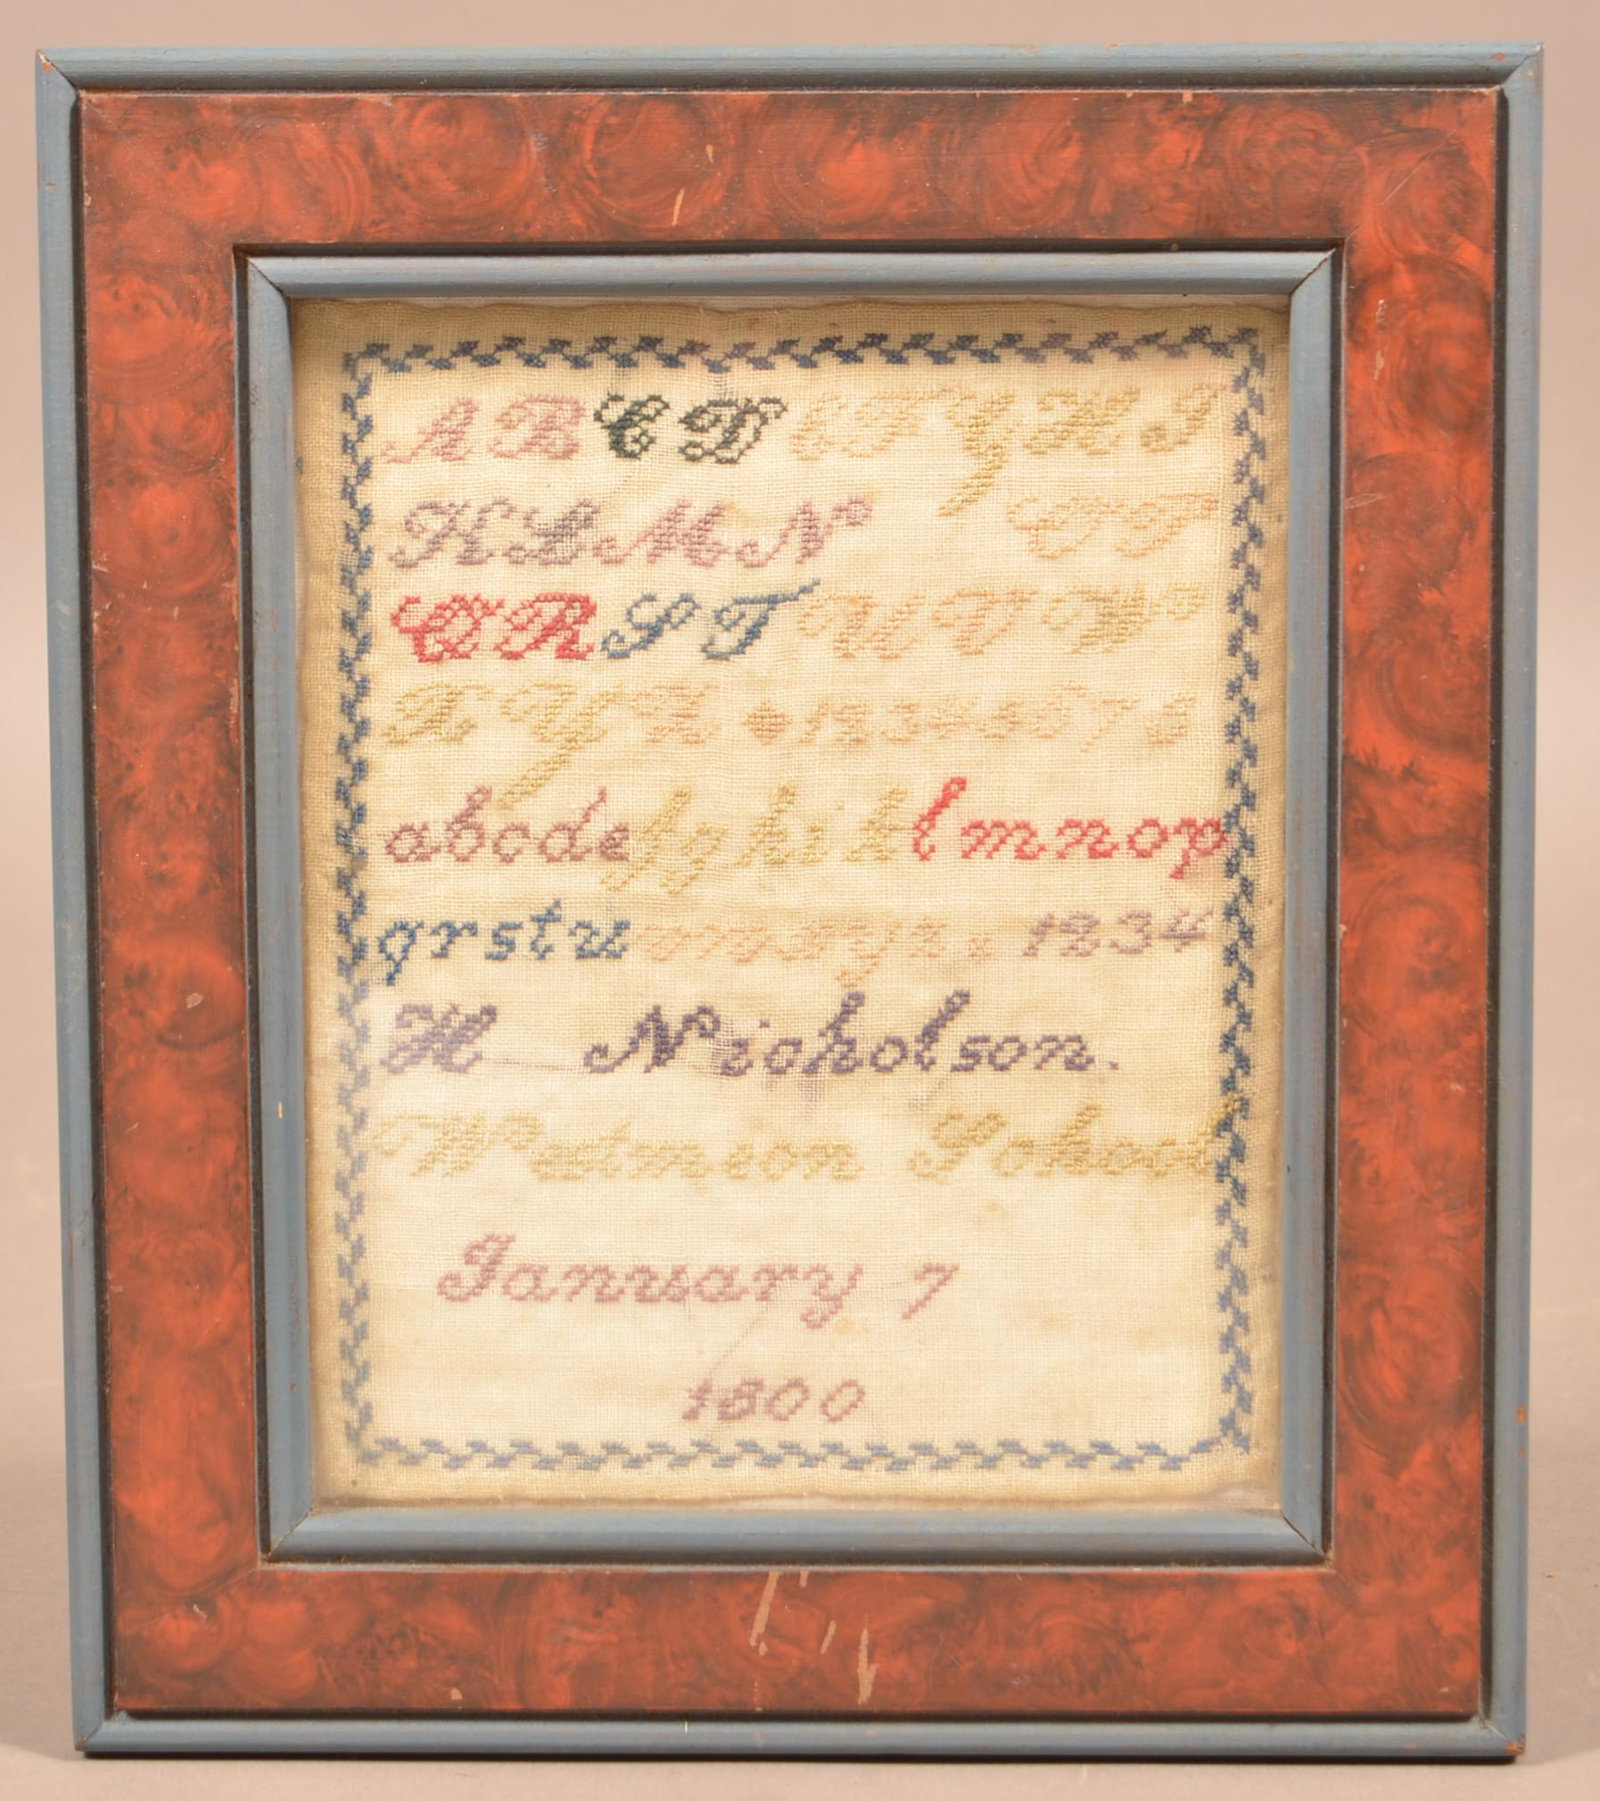 A B C D E F G H I
K L M N O P
Q R S T U V W
X Y Z 1 2 3 4 5 6 7 8
a b c d e f g h i k l m n o p
q r s t u v w x y z 1 2 3 4
H Nicholson.
Westmeon School
January 7
1800